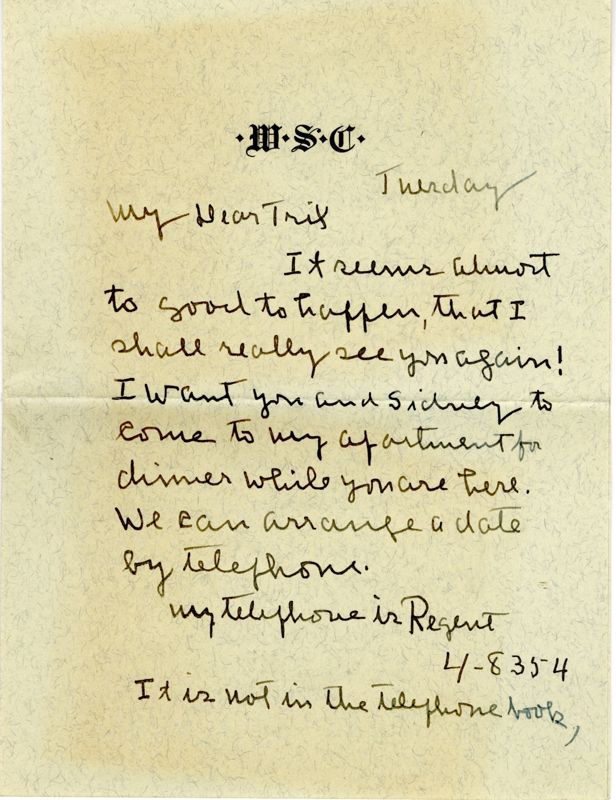 ·W·S·C·
Tuesday
My Dear Trix
It seems almost
to good to happen, that I
shall really see you again!
I want you and Sidney to
come to my apartment for
dinner while you are here.
We can arrange a date
by telephone.
my telephone is Regent
4-8354
It is not in the telephone book,